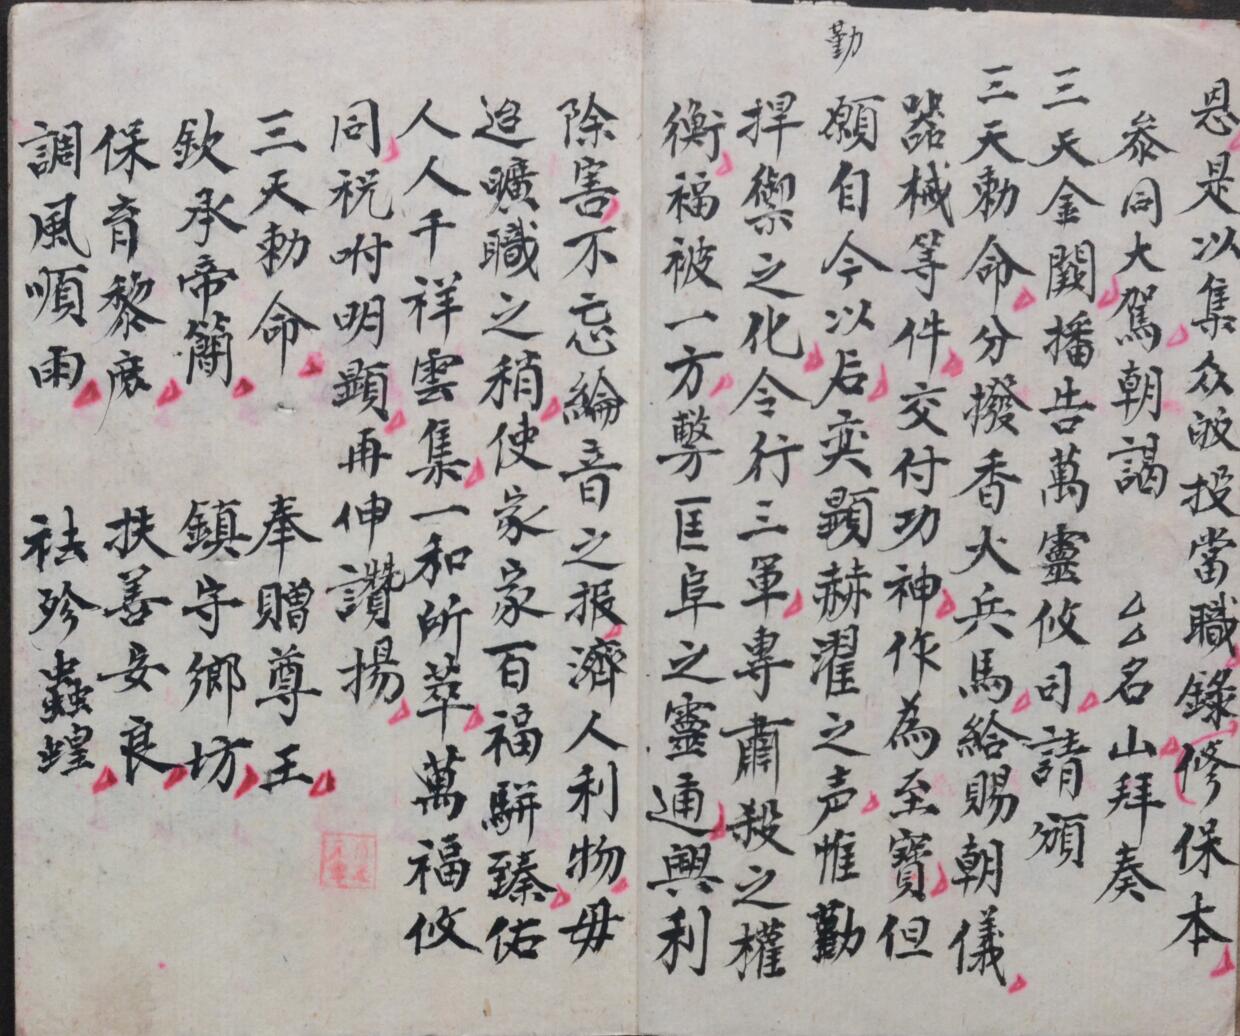 恩是以集众皈投當職錄修保本
叅同大駕朝謁 厶厶名山拜奏
三天金闕播告萬靈攸司請頒
三天勅命分撥香火兵馬給賜朝儀
器械等件交付功神作為至寶但
願自今以后奕顯赫濯之声惟勤
勤
捍禦之化令行三軍專肅殺之權
衡福被一方擊匡阜之靈通興利
除害不忘綸音之报濟人利物毋
迨曠職之稍使家家百福駢臻佑
人人千祥雲集一和所萃萬福攸
同祝咐明顯再伸讚揚
三天勅命 奉贈尊王
欽承帝簡 鎮守鄉坊
保育黎庶 扶善安良
調風順雨 祛殄蟲蝗